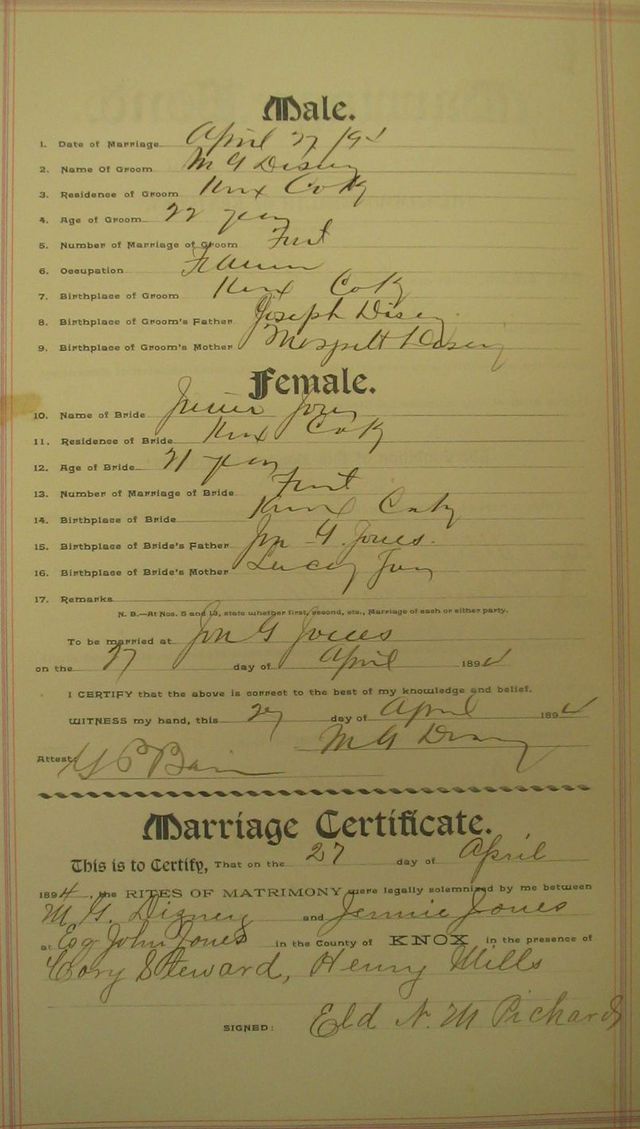 Male.
1. Date of Marriage April 27 / 94
2. Name Of Groom M G Disney
3. Residence of Groom Knox Co Ky
4. Age of Groom 22 years
5. Number of Marriage of Groom First
6. Occupation Farmer
7. Birthplace of Groom Knox Co Ky
8. Birthplace of Groom's Father Joseph Disney
9. Birthplace of Groom's Mother Disney
Female.
10. Name of Bride Jennie Jones
11. Residence of Bride Knox Co Ky
12. Age of Bride 21 years
13. Number of Marriage of Bride First
14. Birthplace of Bride Knox Co Ky
15. Birthplace of Bride's Father Jon G. Jones.
16. Birthplace of Bride's Mother Lucy Jones
17. Remarks
N. B.—At Nos. 5 and 13, state whether first, second, etc., Marriage of each or either party.
To be married at Jon G Jones
on the 27 day of April 1894
I CERTIFY that the above is correct to the best of my knowledge and belief.
WITNESS my hand, this 27 day of April 1894
M G Disney
Attest:
Marriage Certificate.
This is to Certify, That on the 27 day of April
1894, the RITES OF MATRIMONY were legally solemnized by me between
M. G. Disney and Jennie Jones
at Esq John Jones in the County of KNOX in the presence of
Cory Steward, Henry Mills
SIGNED: Eld N. M Pichard